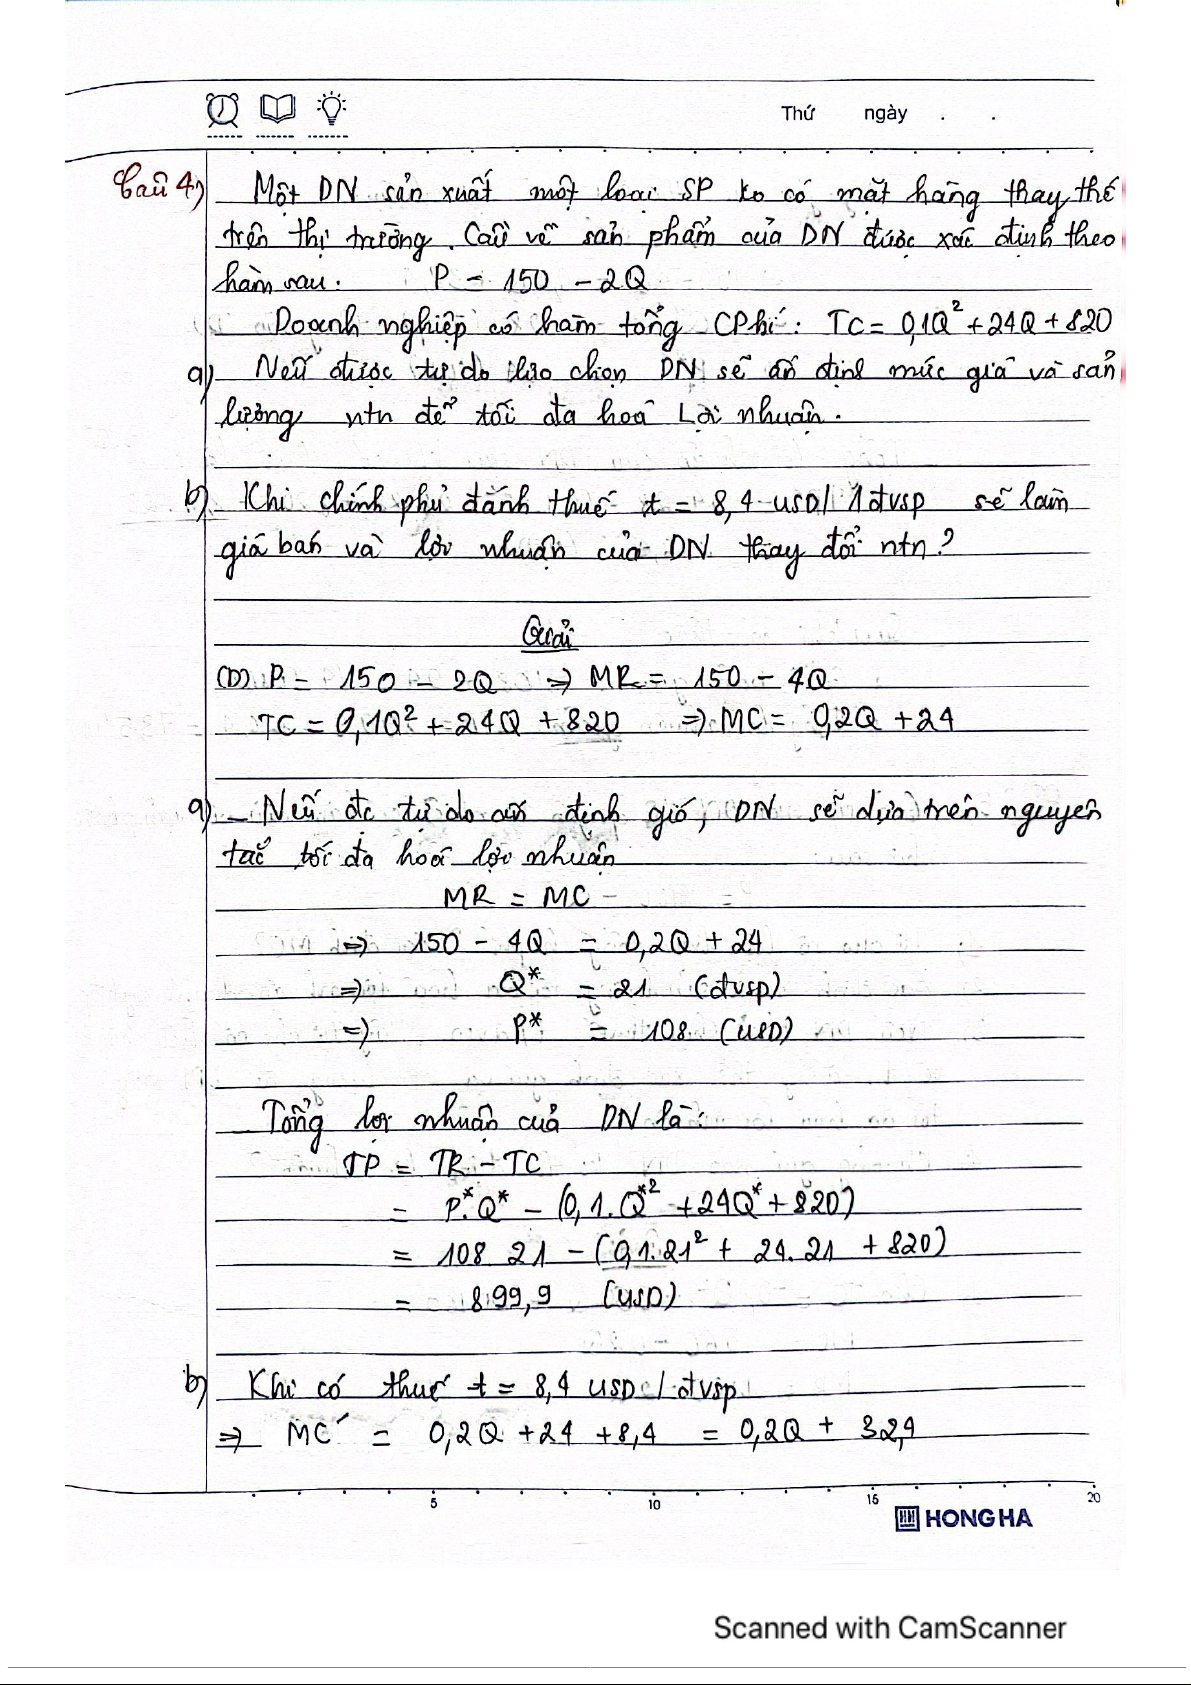 Thứ ngày . .
Câu 4) Một DN sản xuất một loại SP ko có mặt hàng thay thế
trên thị trường. Cầu về sản phẩm của DN được xác định theo
hàm sau: P = 150 - 2Q
Doanh nghiệp có hàm tổng CPhí: TC = 0,1Q² + 24Q + 820
a) Nếu được tự do lựa chọn DN sẽ ấn định mức giá và sản
lượng ntn để tối đa hoá Lợi nhuận.
b) Khi chính phủ đánh thuế t = 8,4 USD/1đvsp sẽ làm
giá bán và lợi nhuận của DN thay đổi ntn?
Giải
(D) P = 150 - 2Q => MR = 150 - 4Q
TC = 0,1Q² + 24Q + 820 => MC = 0,2Q + 24
a) - Nếu đc tự do ấn định giá, DN sẽ dựa trên nguyên
tắc tối đa hoá lợi nhuận
MR = MC
=> 150 - 4Q = 0,2Q + 24
=> Q* = 21 (đvsp)
=> P* = 108 (USD)
Tổng lợi nhuận của DN là:
TP = TR - TC
= P*.Q* - (0,1.Q*² + 24Q* + 820)
= 108.21 - (0,1.21² + 24.21 + 820)
= 899,9 (USD)
b) Khi có thuế t = 8,4 USD/đvsp
=> MC' = 0,2Q + 24 + 8,4 = 0,2Q + 32,4
5 10 15 20
HONG HA
Scanned with CamScanner